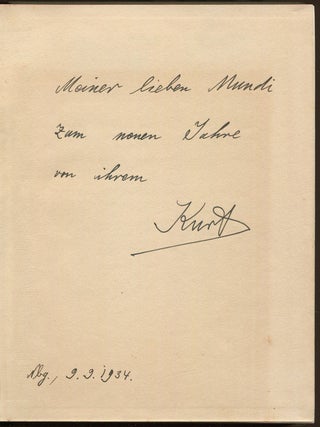 Meiner lieben Mundi
zum neuen Jahre
von ihrem
Kurt
9.9.1934.